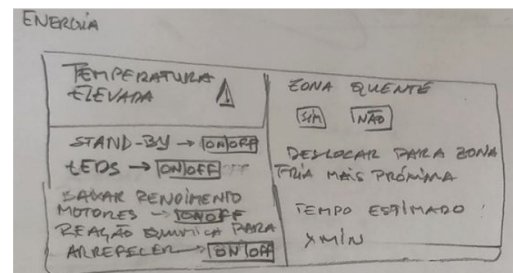 ENERGIA
TEMPERATURA
ELEVADA
STAND-BY → ON OFF
LEDS → ON OFF
BAIXAR RENDIMENTO
MOTORES → ON OFF
REAÇÃO QUIMICA PARA
ARREFECER → ON OFF
ZONA QUENTE
SIM NÃO
DESLOCAR PARA ZONA
FRIA MAIS PRÓXIMA
TEMPO ESTIMADO :
X MIN